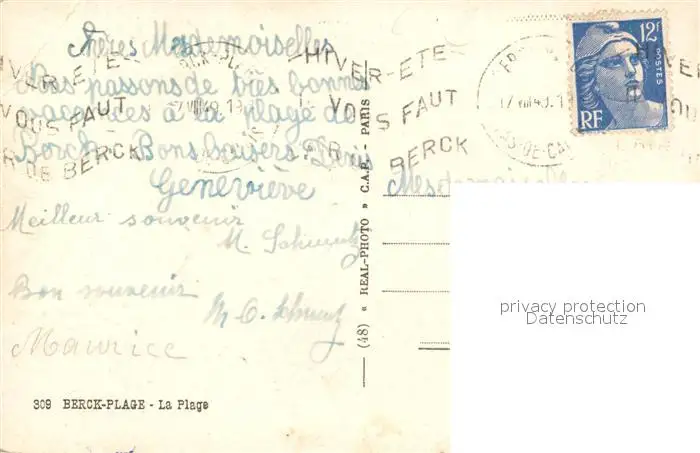 Chères Mesdemoiselles
Nous passons de très bonnes
vacances à la plage de
Berck. Bons baisers Denis
Geneviève
Meilleur souvenir
M.
Bon souvenir
Maurice
309 BERCK-PLAGE - La Plage
(48) « REAL-PHOTO » C.A.P. - PARIS
HIVER-ETE
VOUS FAUT
BERCK
HIVER-ETE
VOUS FAUT
R DE BERCK
PAS-DE-CAL
12F
POSTES
RF
Mesdemoiselles
privacy protection
Datenschutz